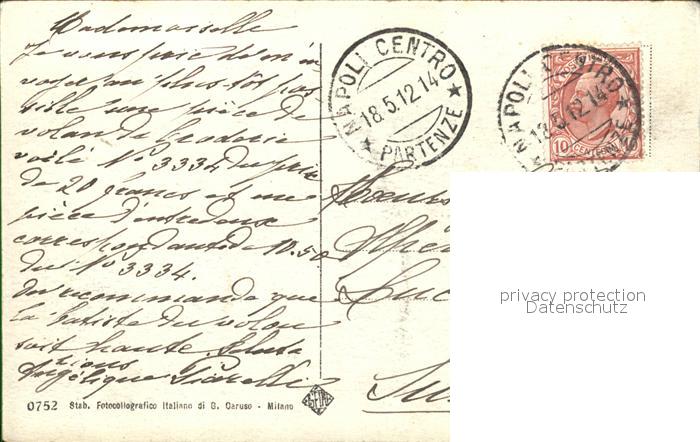 Mademoiselle
Je vous prie de m'en
voyer au plus tôt pos
sible une pièce de
volan de broderie
voilé No 3334 du prix
de 20 francs et une
pièce d'entredeux
correspondant de 10.50
du No 3334.
recommande que
la batiste du volan
soit haute. Saluta
tions
Angélique
NAPOLI CENTRO
18.5.12.14
PARTENZE
NAPOLI CENTRO
18.5.12.14
10 CENTESIMI
Suc
privacy protection
Datenschutz
0752 Stab. Fotocollografico Italiano di G. Caruso - Milano